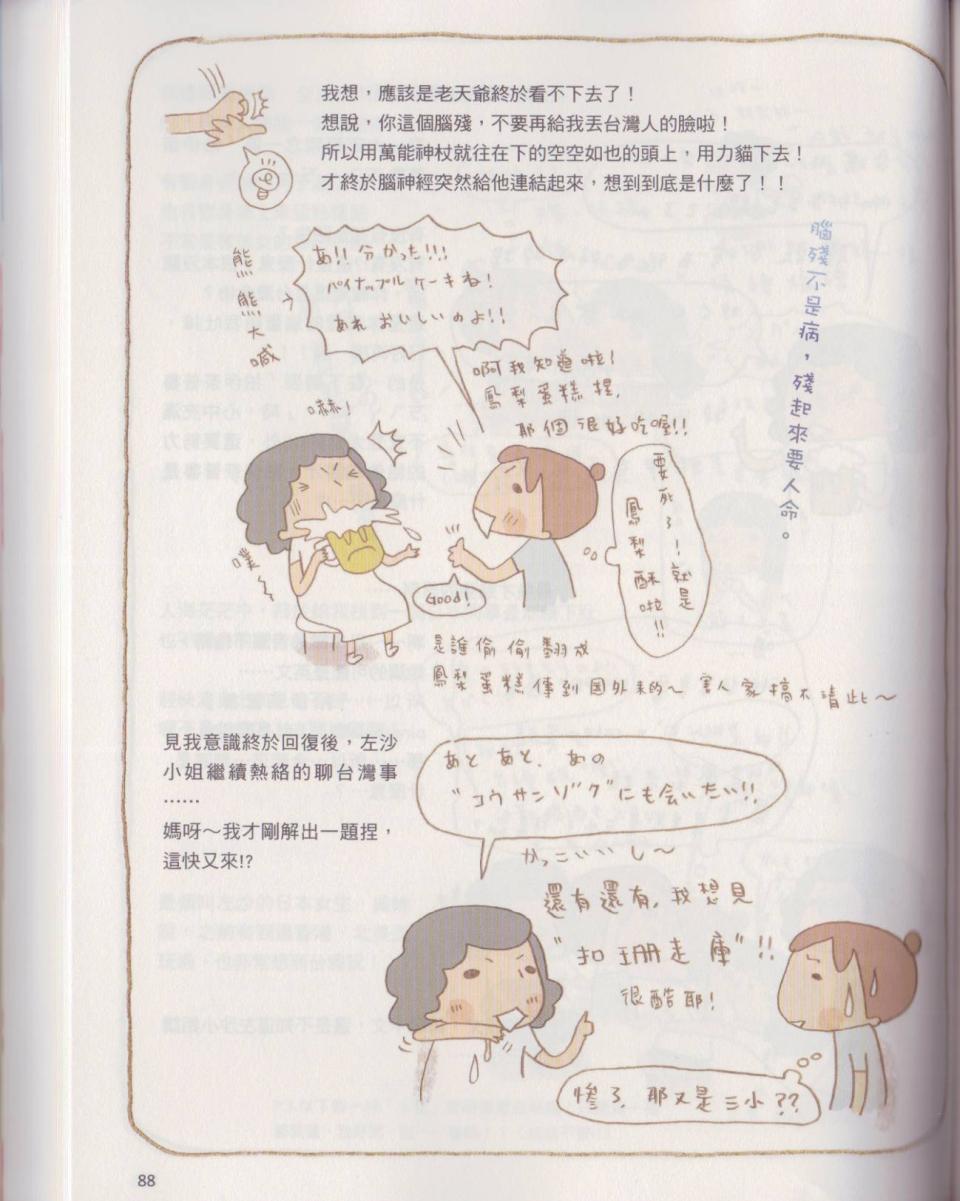 我想，應該是老天爺終於看不下去了！
想說，你這個腦殘，不要再給我丟台灣人的臉啦！
所以用萬能神杖就往在下的空空如也的頭上，用力貓下去！
才終於腦神經突然給他連結起來，想到到底是什麼了！！
腦殘不是病，殘起來要人命。
熊熊大喊
あ!! 分かった!!!
パイナップルケーキね!
あれ おいしいのよ!!
啊我知道啦!
鳳梨蛋糕捏,
那個很好吃喔!!
嚇!
噗~
Good!
要死了!就是
鳳梨酥啦!!
是誰偷偷翻成
鳳梨蛋糕傳到國外來的~ 害人家搞不清此~
見我意識終於回復後，左沙
小姐繼續熱絡的聊台灣事
……
媽呀～我才剛解出一題捏，
這快又來!?
あと あと、あの
"コウサンゾク"にも会いたい!!
かっこいいし~
還有還有,我想見
"扣珊走庫"!!
很酷耶!
慘了 那又是三小??
88